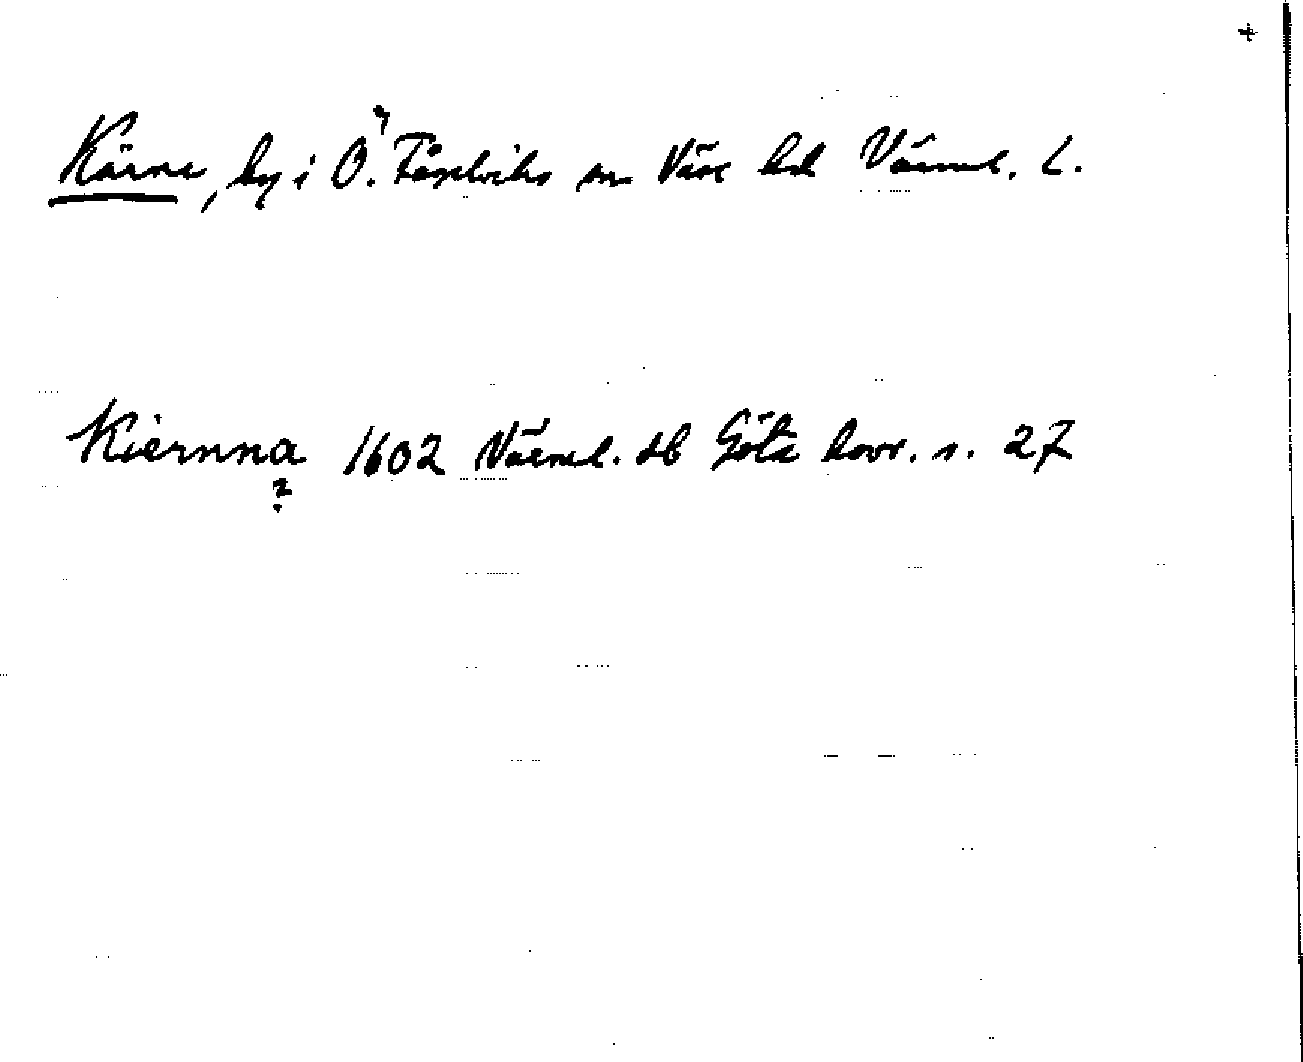 +
Kärne, by i Ö. Fågelviks sn Väse hd Värml. l.
Kiernna 1602 Värml. db Göta hovr. s. 27
?